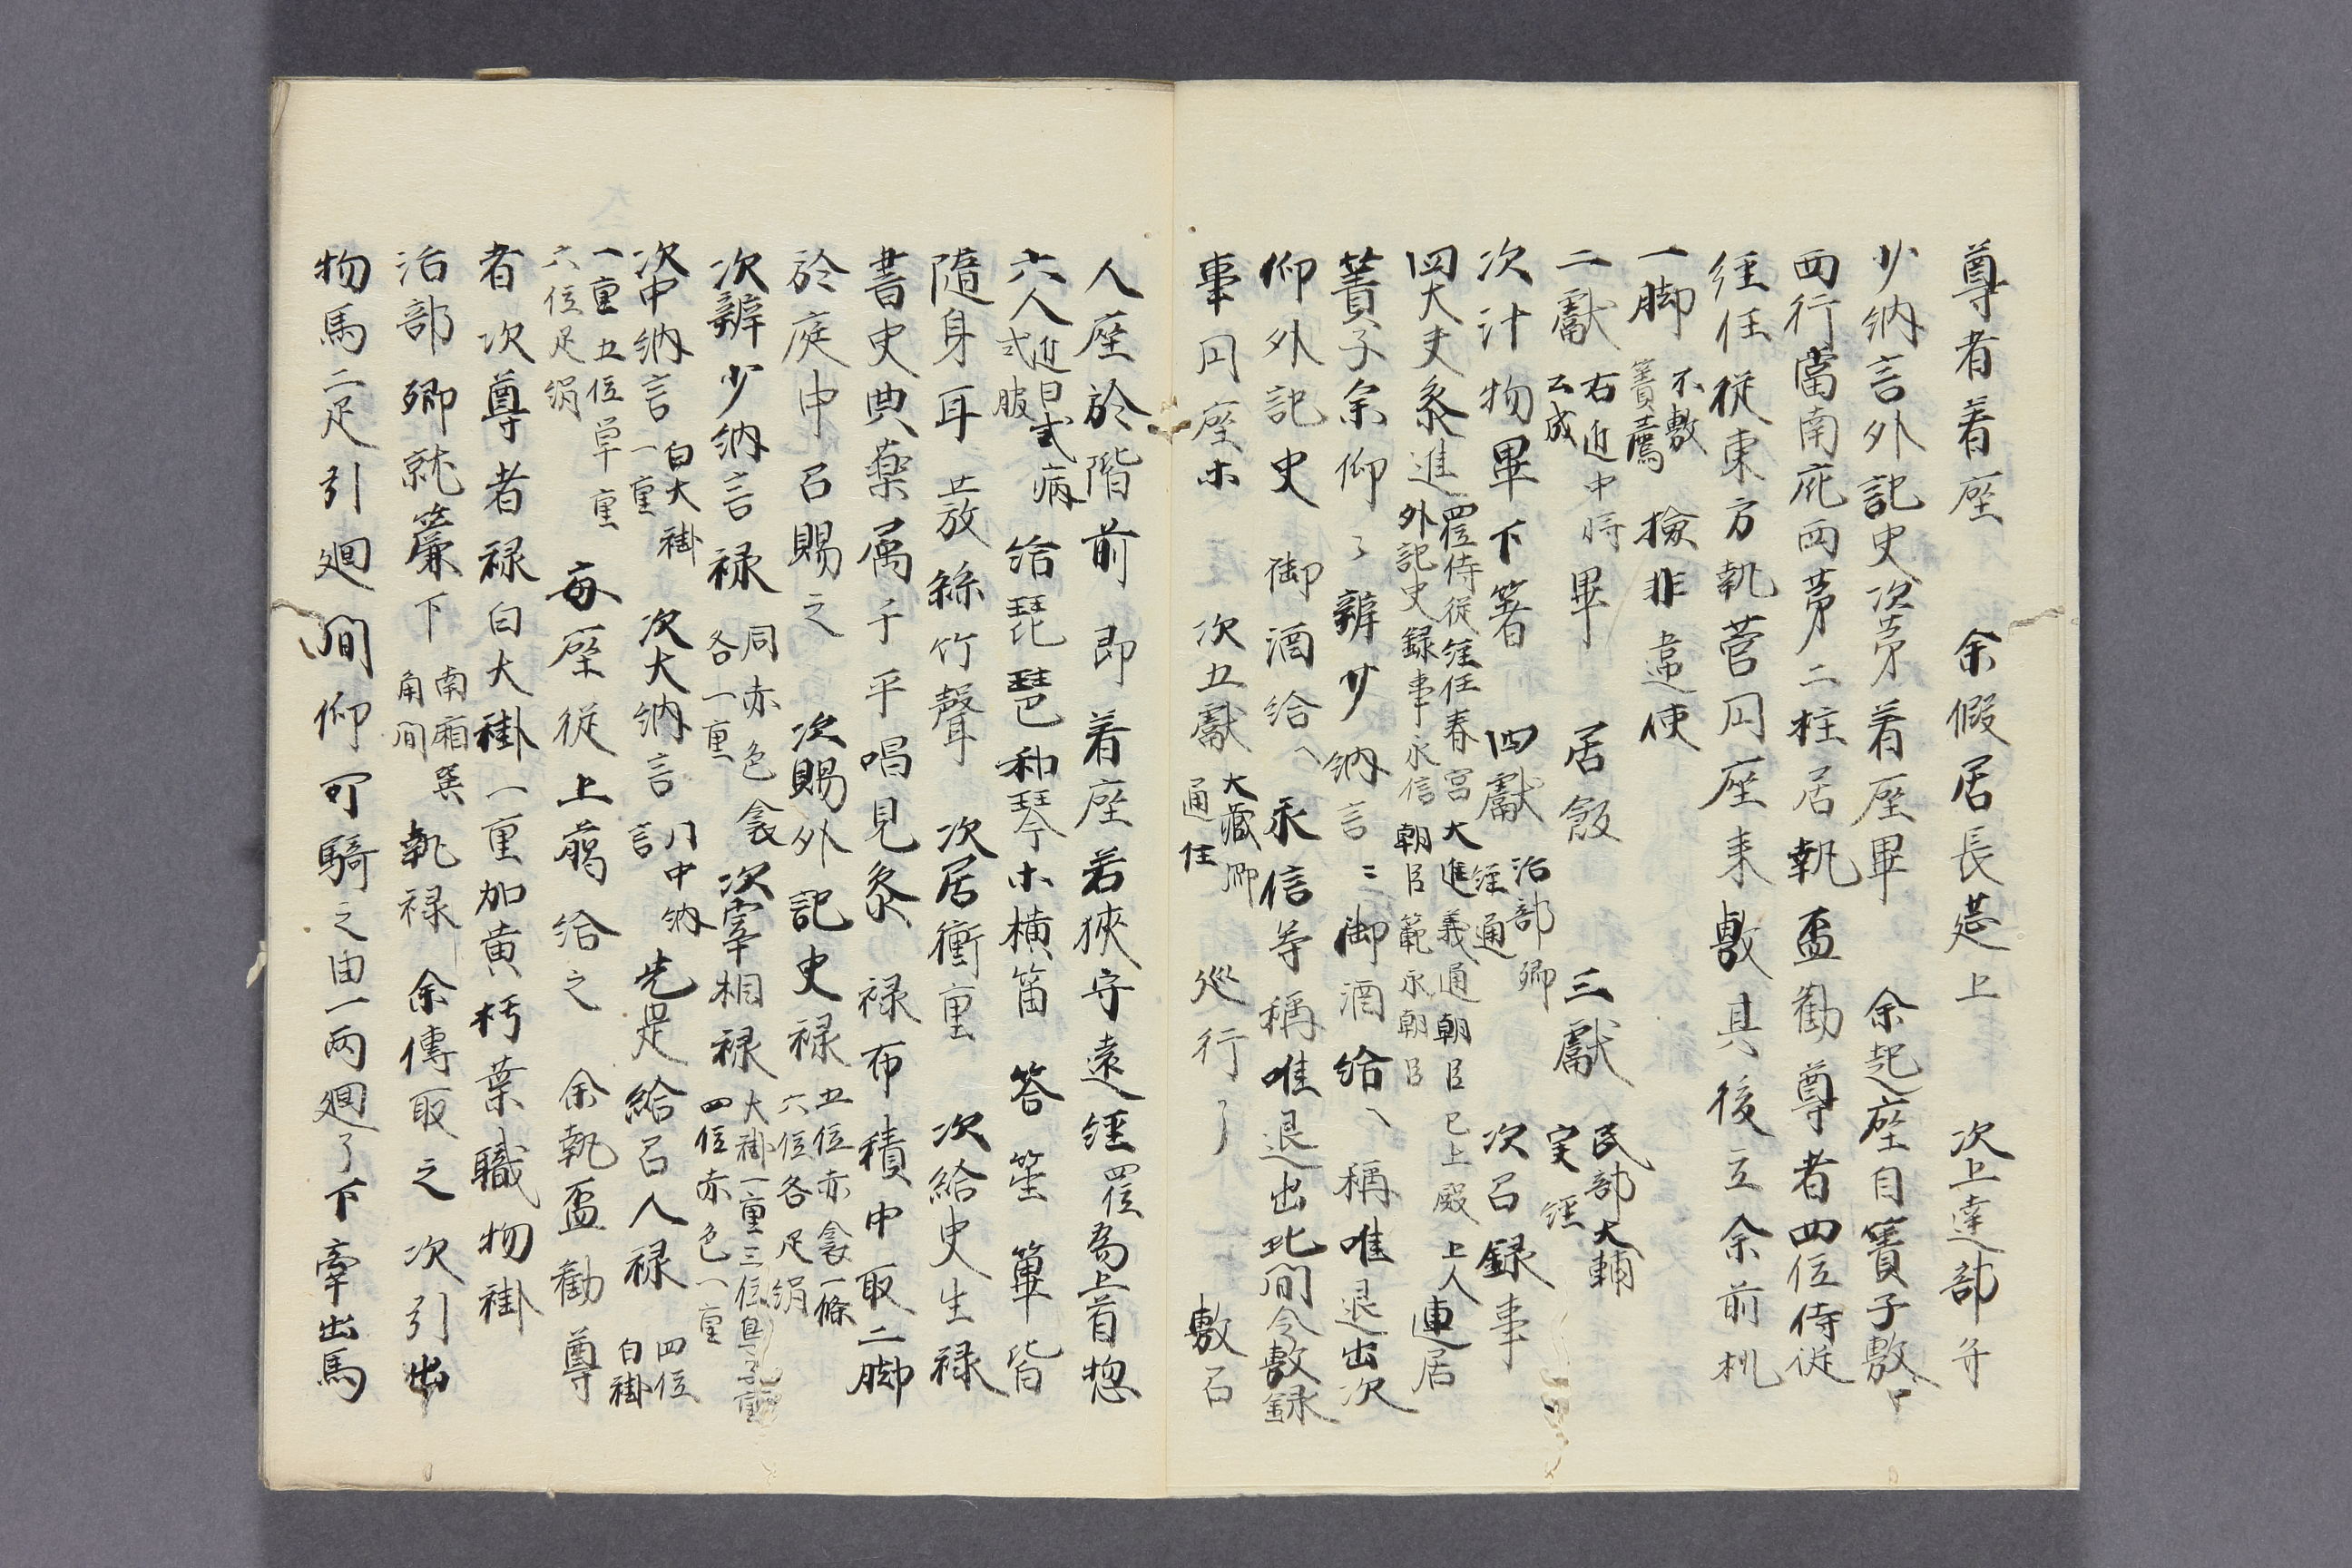 尊者着座 余假居長莚上 次上達部弁
少納言外記史次第着座畢 余起座自簀子敷
西行當南庇西第二柱居執盃勸尊者四位侍従
経任従東方執菅円座来敷其後立余前机
一脚 不敷簀薦 撿非違使
二獻 右近中将公成 畢 居飯 三獻 民部大輔実経
次汁物畢下箸 四獻 治部卿経通 次召録事
四大夫参進 侍従経任春宮大進義通朝臣已上殿上人外記史録事永信朝臣範永朝臣 連居
簀子余仰々辨少納言ニ御酒給へ 稱唯退出次
仰外記史 御酒給へ 永信等稱唯退出此間令敷録
事円座ホ 次五獻 大藏卿通任 巡行了 敷召
人座於階前 即着座若狭守遠経 為上首惣
六人 近日式病式服 給琵琶和琴ホ横笛 答笙篳皆
隨身耳 發絲竹聲 次居衝重 次給史生禄
書史典薬属于平唱見参 禄布積中取二脚
於庭中召賜之 次賜外記史禄 五位赤衾一條六位各疋絹
次辨少納言禄 同赤色衾各一重 次宰相禄 大褂一重三位四位赤色一重
次中納言 白大褂一重 次大納言 同中納言 先是給召人禄 四位白褂
一重五位単重六位疋絹 毎座従上﨟給之 余執盃勸尊
者次尊者禄白大褂一重加黄朽葉織物褂
治部卿就簾下 南廂巽角間 執禄 余傳取之次引出
物馬二疋引廻間仰可騎之由一兩廻了下牽出馬